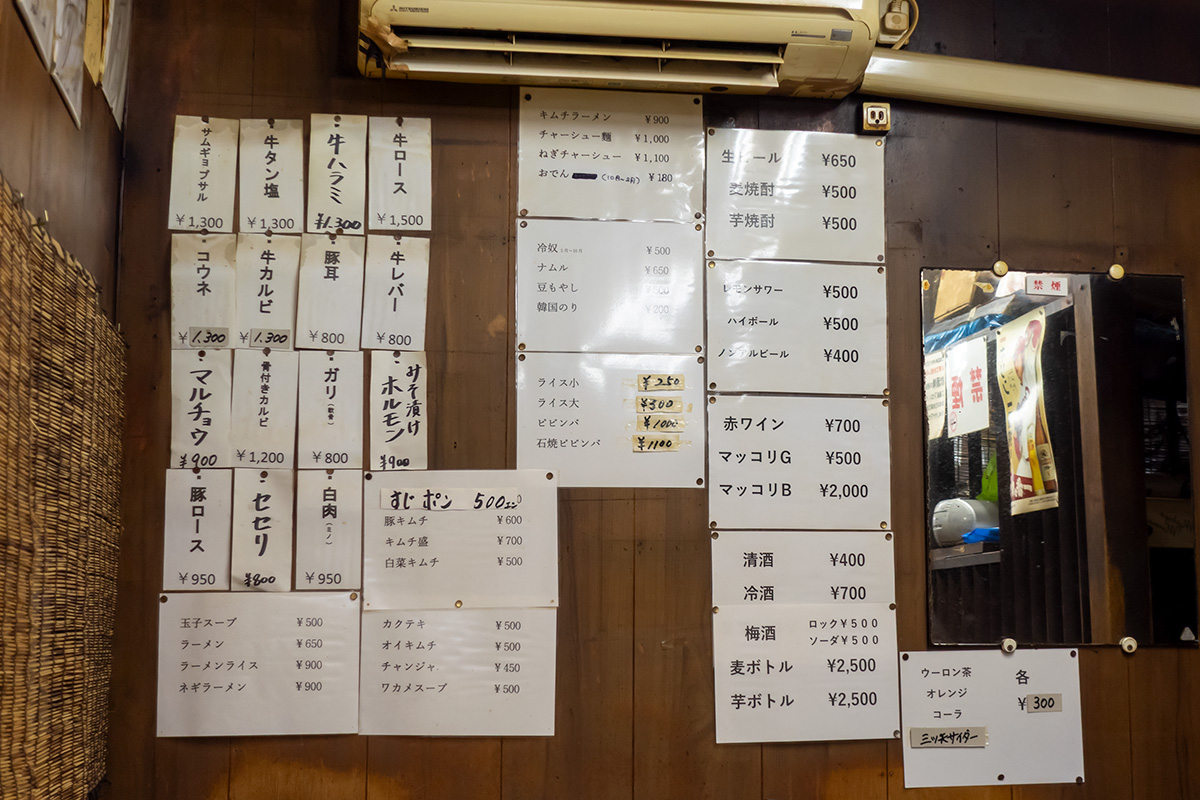 MITSUBISHI
サムギョプサル
¥1,300
牛タン塩
¥1,300
牛ハラミ
¥1,300
牛ロース
¥1,500
コウネ
¥1,300
牛カルビ
¥1,300
豚耳
¥800
牛レバー
¥800
マルチョウ
¥900
骨付きカルビ
¥1,200
ガリ(軟骨)
¥800
みそ漬け
ホルモン
¥900
豚ロース
¥950
セセリ
¥800
白肉(ミノ)
¥950
すじポン 500エン
豚キムチ ¥600
キムチ盛 ¥700
白菜キムチ ¥500
玉子スープ ¥500
ラーメン ¥650
ラーメンライス ¥900
ネギラーメン ¥900
カクテキ ¥500
オイキムチ ¥500
チャンジャ. ¥450
ワカメスープ ¥500
キムチラーメン ¥900
チャーシュー麺 ¥1,000
ねぎチャーシュー ¥1,100
おでん (10月〜2月) ¥180
冷奴 ¥500
ナムル ¥650
豆もやし
韓国のり ¥200
ライス小 ¥250
ライス大 ¥300
ビビンバ ¥1000
石焼ビビンバ ¥1100
生ビール ¥650
麦焼酎 ¥500
芋焼酎 ¥500
レモンサワー ¥500
ハイボール ¥500
ノンアルビール ¥400
赤ワイン ¥700
マッコリG ¥500
マッコリB ¥2,000
清酒 ¥400
冷酒 ¥700
梅酒 ロック¥500
ソーダ¥500
麦ボトル ¥2,500
芋ボトル ¥2,500
禁煙
禁煙
ウーロン茶 各
オレンジ ¥300
コーラ
三ツ矢サイダー